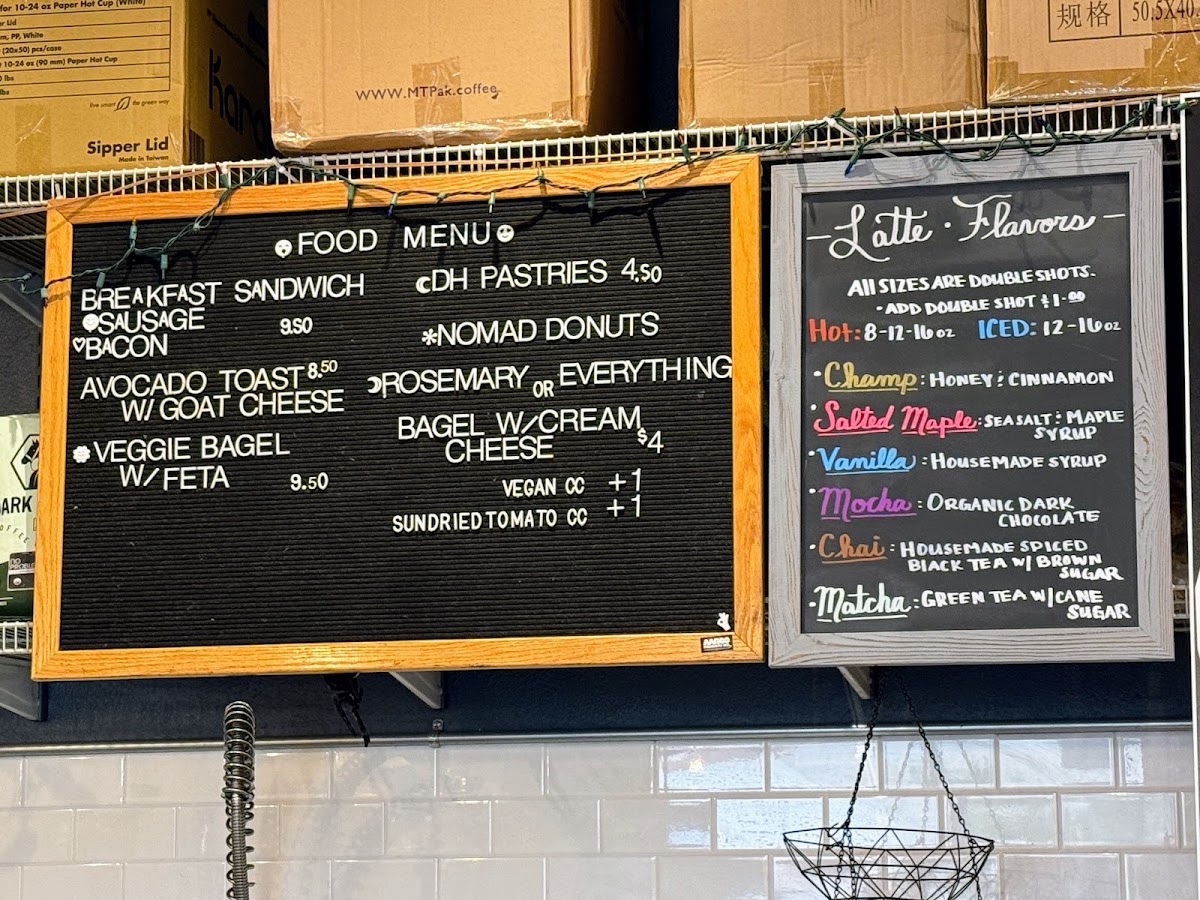 for 10-24 oz Paper Hot Cup (White)
PP, White
(20x50) pcs/case
10-24 oz (90 mm) Paper Hot Cup
the green way
Sipper Lid
Made in Taiwan
www.MTPak.coffee
规格 50.5X40.
FOOD MENU
BREAKFAST SANDWICH
SAUSAGE 9.50
BACON
AVOCADO TOAST 8.50
W/ GOAT CHEESE
VEGGIE BAGEL
W/ FETA 9.50
DH PASTRIES 4.50
*NOMAD DONUTS
ROSEMARY OR EVERYTHING
BAGEL W/CREAM
CHEESE $4
VEGAN CC +1
SUNDRIED TOMATO CC +1
-Latte · Flavors-
All SIZES ARE DOUBLE SHOTS.
·ADD DOUBLE SHOT $1.00
Hot: 8-12-16oz ICED: 12-16oz
·Champ: HONEY & CINNAMON
·Salted Maple: SEA SALT & MAPLE
SYRUP
·Vanilla: HOUSEMADE SYRUP
·Mocha: ORGANIC DARK
CHOCOLATE
·Chai: HOUSEMADE SPICED
BLACK TEA W/ BROWN
SUGAR
·Matcha: GREEN TEA W/CANE
SUGAR